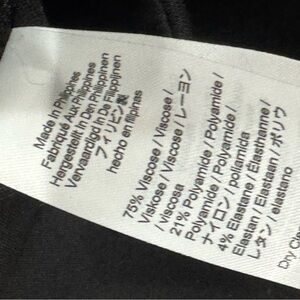 Made In Philippines
Fabriqué Aux Philippines
Hergestellt In Den Philippinen
Vervaardigd In De Filippijnen
フィリピン製
hecho en filipinas
75% Viscose / Viscose /
Viskose / Viscose / レーヨン
/ Viscosa
21% Polyamide / Polyamide /
Polyamide / Polyamide /
ナイロン / poliamida
4% Elastane / Élasthanne /
Elastan / Elastaan / ポリウ
レタン / elastano
Dry